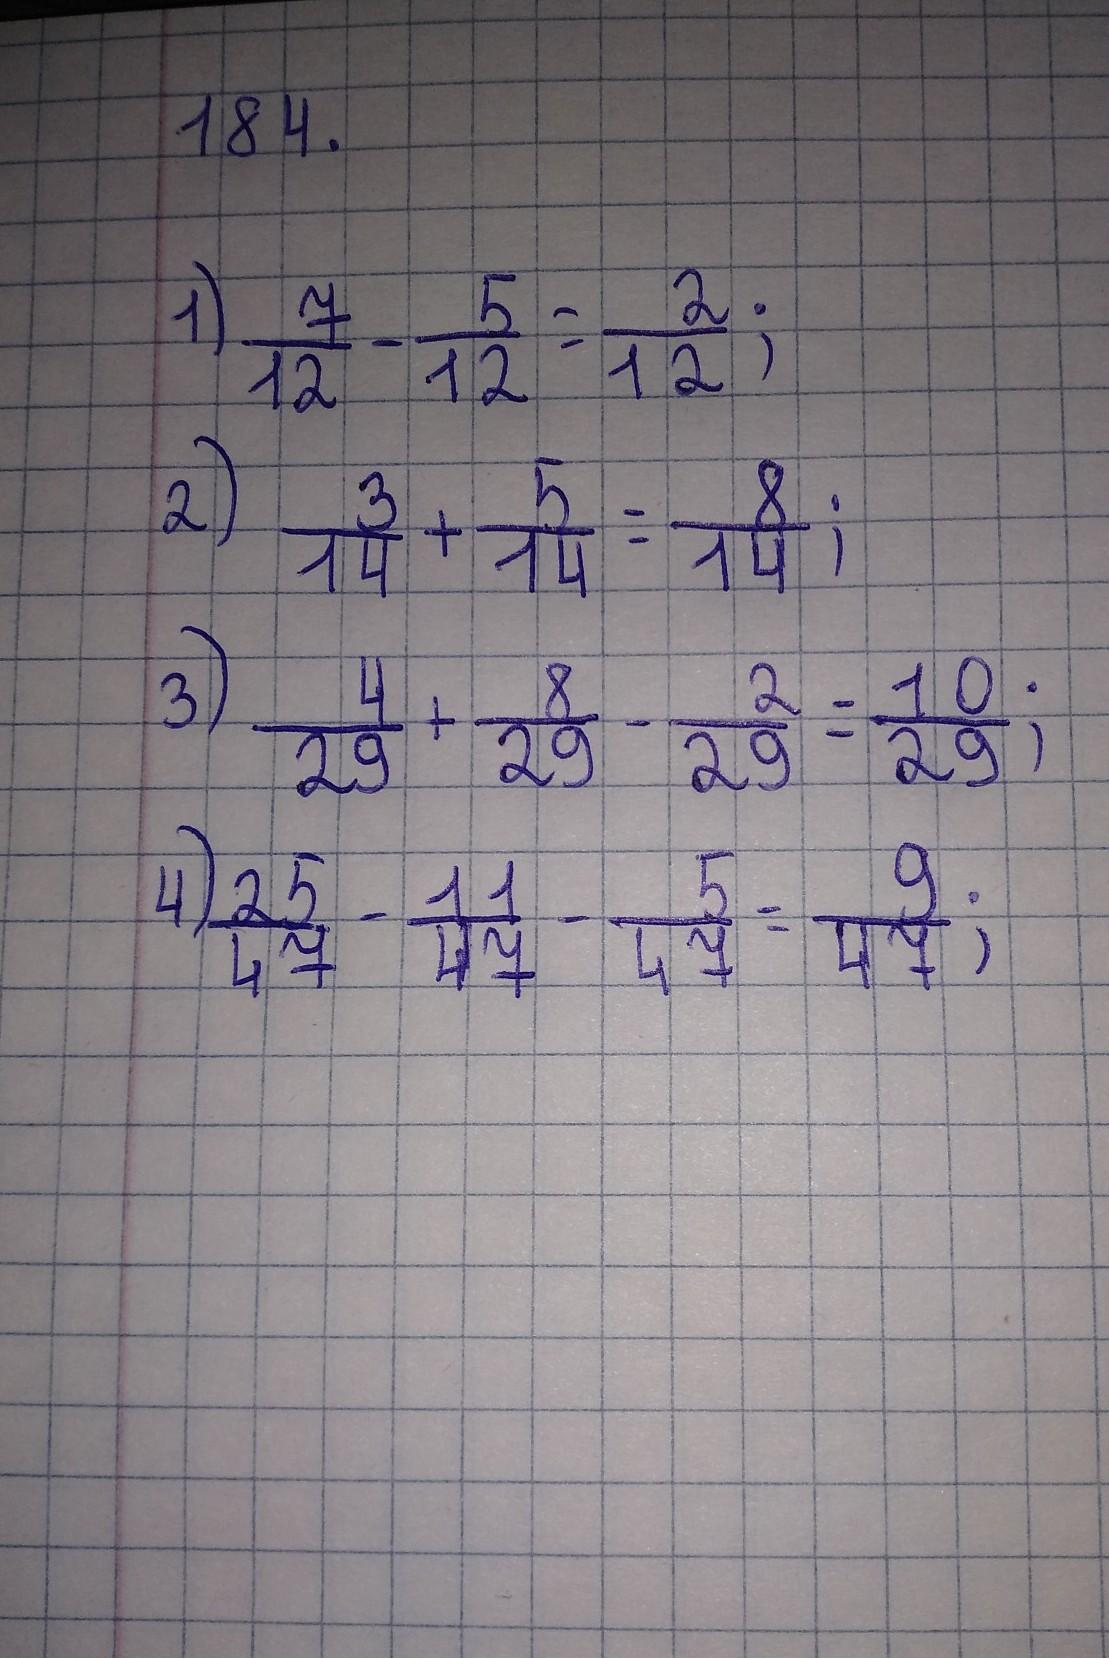 184.
1) 7/12 - 5/12 = 2/12;
2) 3/14 + 5/14 = 8/14;
3) 4/29 + 8/29 - 2/29 = 10/29;
4) 25/47 - 11/47 - 5/47 = 9/47;